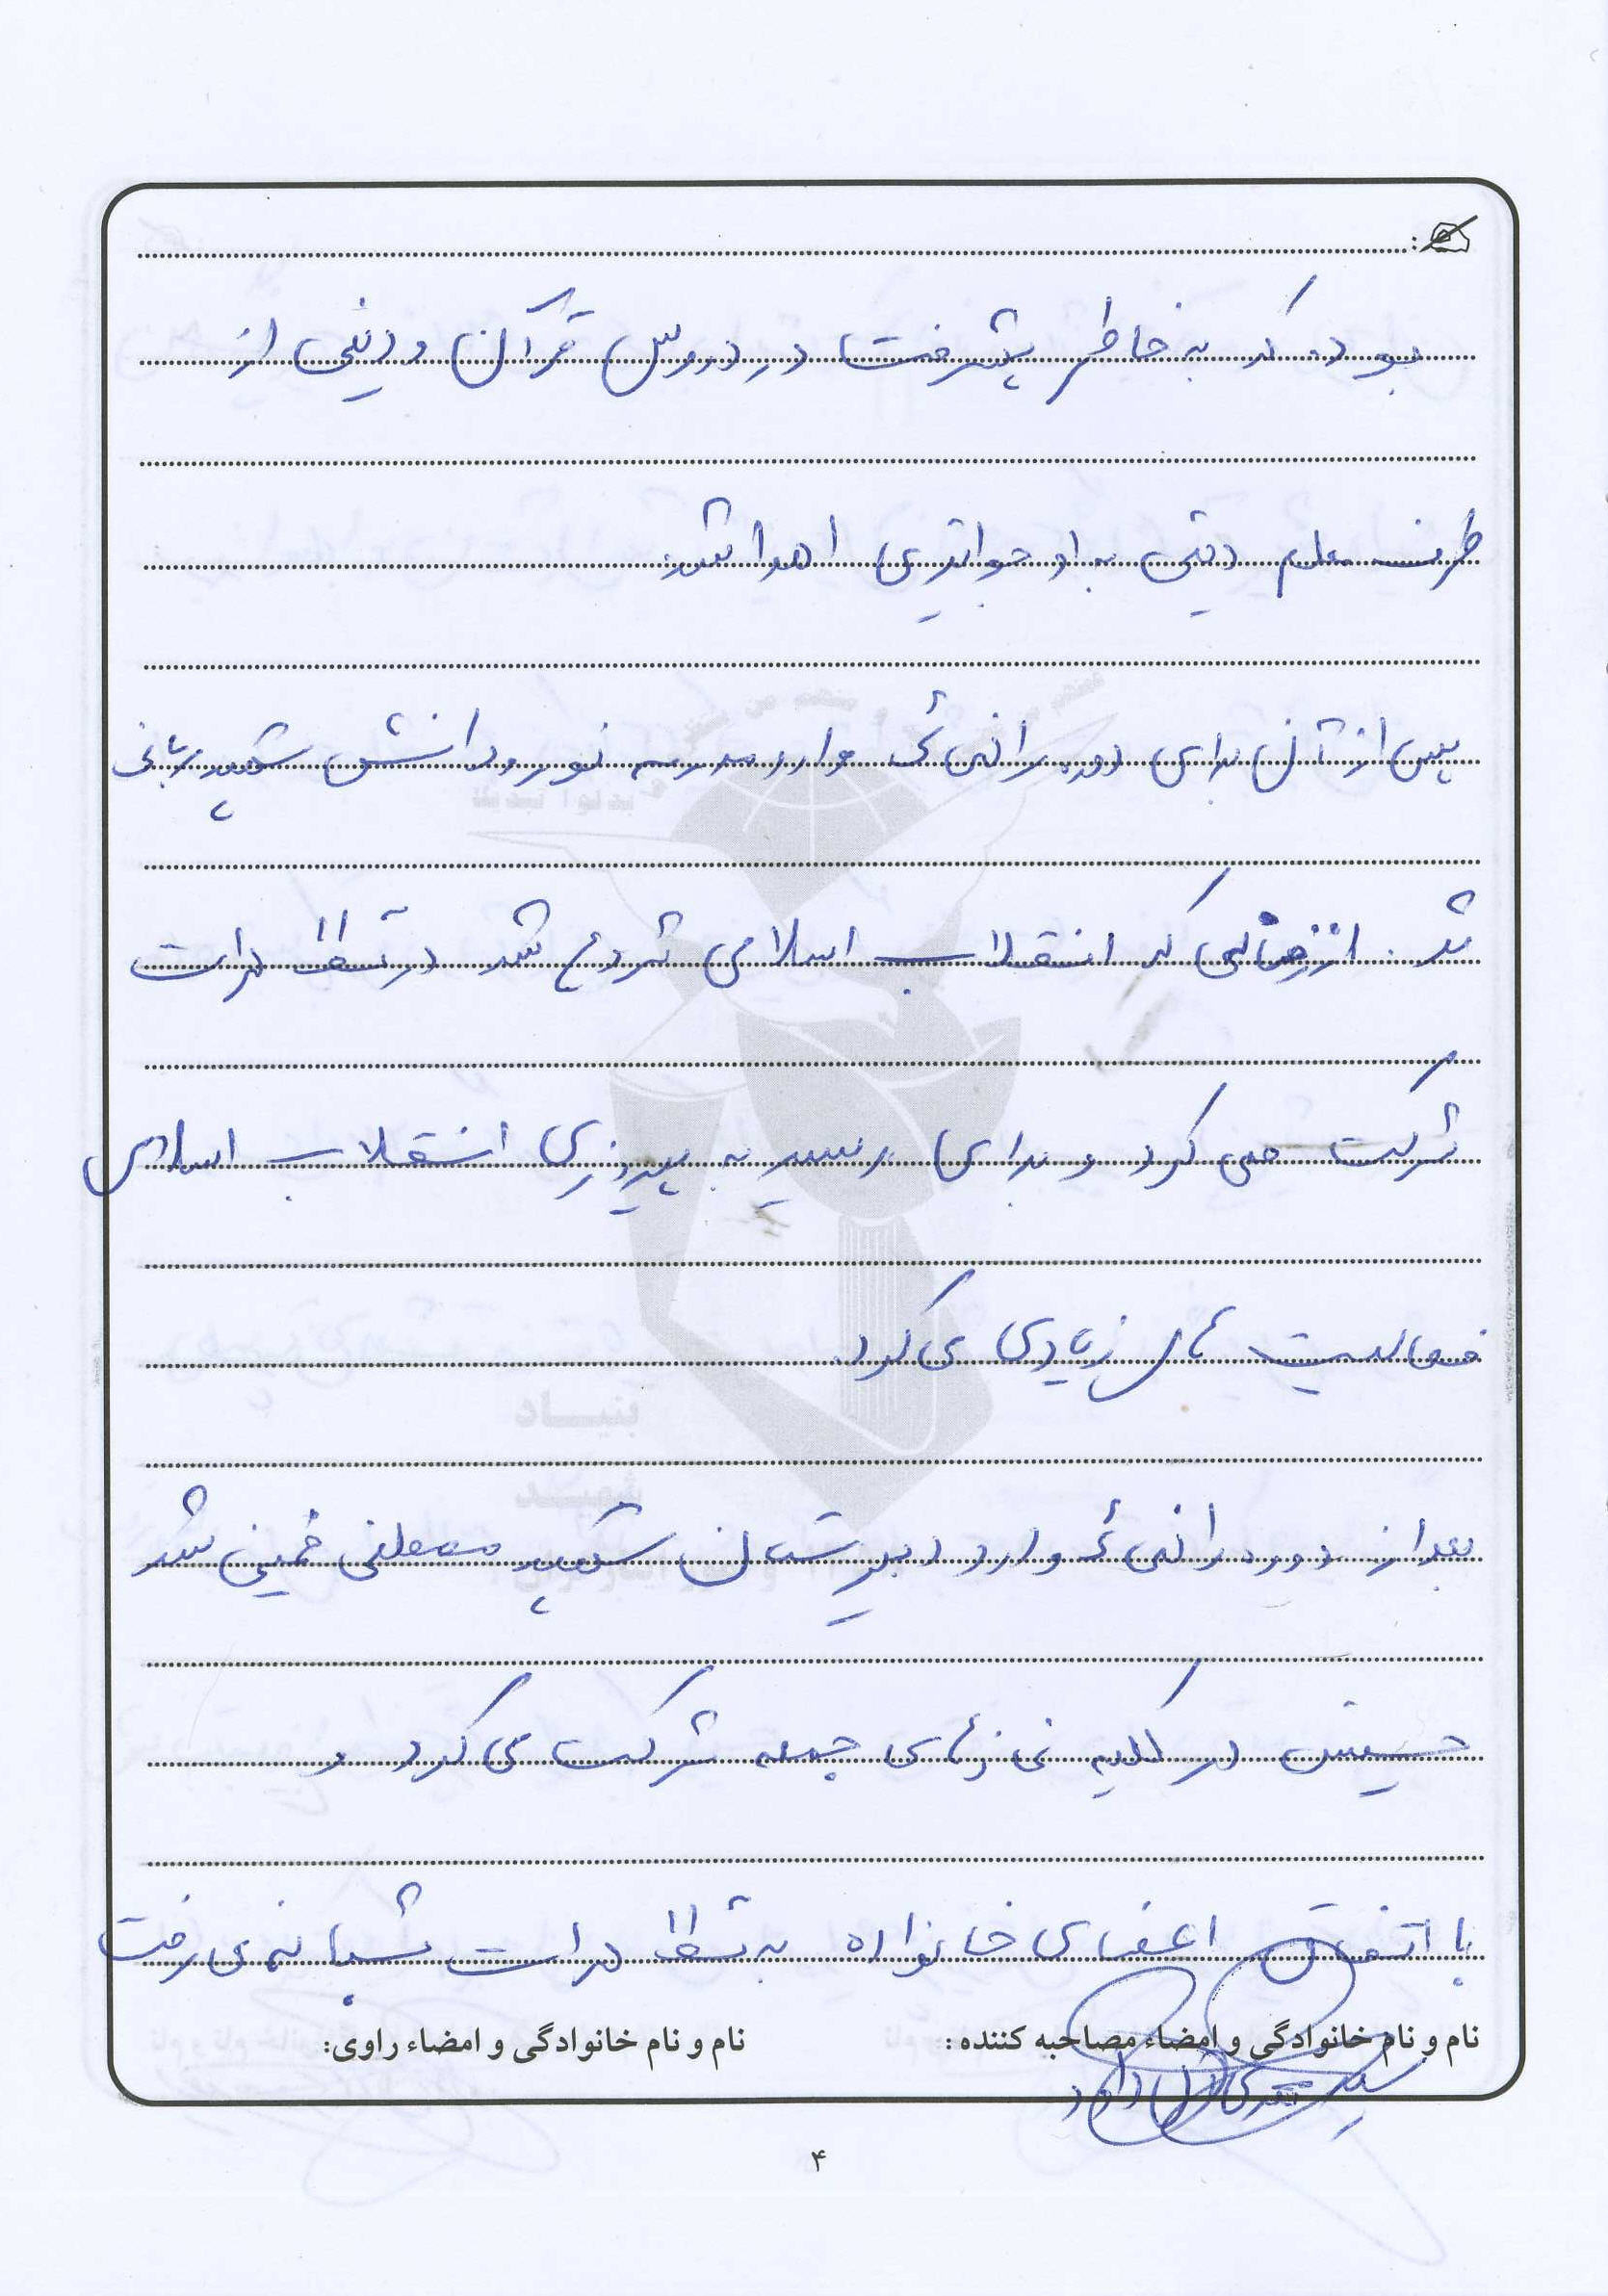 بود که به خاطر پیشرفت در دروس قرآن و دینی از
طرف معلم دینی به او جوایزی اهدا شد.
پس از آن برای دوره راهنمائی وارد مدرسه نور و دانش شهید ربانی
شد. از زمانی که انقلاب اسلامی شروع شد در تظاهرات
شرکت می کرد و برای رسیدن به پیروزی انقلاب اسلامی
فعالیت های زیادی می کرد.
بعد از دوره راهنمائی وارد دبیرستان شهید مصطفی خمینی شد
حسین در کلیه نمازهای جمعه شرکت می کرد و
با اتفاق اعضای خانواده به تظاهرات شبانه می رفت
نام و نام خانوادگی و امضاء مصاحبه کننده:
نام و نام خانوادگی و امضاء راوی:
بنیاد
شهید
۴